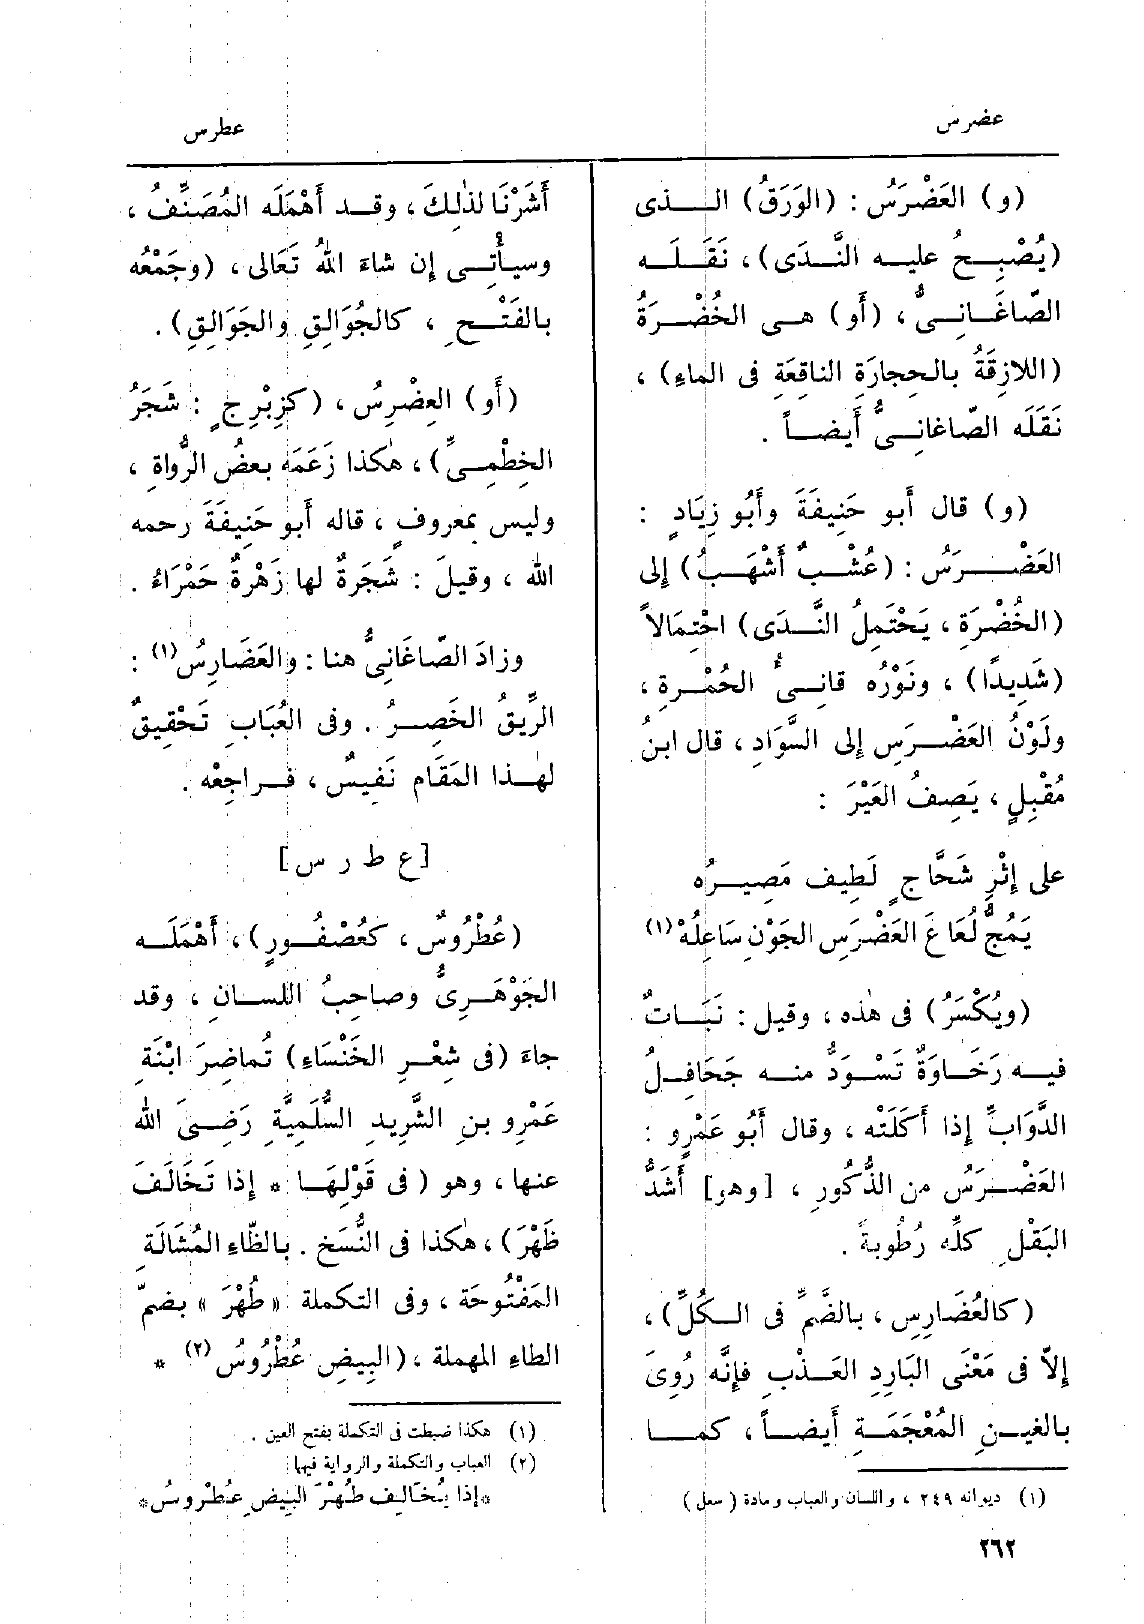 عضرس
عطرس
(و) العَضْرَسُ : (الوَرَقُ) الــذى
(يُصْبِــحُ عليــه النَّــدَى) ، نَقَــلَــه
الصّاغَــانِــىُّ ، (أو) هــى الخُضْــرَةُ
(اللازِقَةُ بالحِجارَةِ الناقِعَةِ فى الماءِ) ،
نَقَلَه الصّاغانِــىُّ أَيضــاً .
(و) قال أَبو حَنِيفَةَ وأَبُو زِيَادٍ :
العَضْــرَسُ : (عُشْبٌ أَشْهَــبُ) إِلى
(الخُضْرَةِ ، يَحْتَمِلُ النَّــدَى) احْتِمَالاً
(شَدِيدًا) ، ونَوْرُه قانِــىءُ الحُمْرةِ ،
ولَوْنُ العَضْــرَسِ إلى السَّوَادِ ، قال ابنُ
مُقْبِلٍ ، يَصِفُ العَيْرَ :
على إِثْرِ شَحَّاجٍ لَطِيف مَصِيــرُه
يَمُجُّ لُعَاعَ العَضْرَسِ الجَوْنِ سَاعِلُهْ (١)
(ويُكْسَرُ) فى هٰذه ، وقيل : نَبَــاتٌ
فيــه رَخَــاوَةٌ تَسْوَدُّ منــه جَحَافِــلُ
الدَّوَابِّ إِذا أَكَلَتْه ، وقال أَبُو عَمْرٍو :
العَضْــرَسُ من الذُّكُورِ ، [وهو] أَشَدُّ
البَقْلِ كلِّه رُطُوبةً .
(كالعُضَارِسِ ، بالضَّمِّ فى الــكُلِّ) ،
إِلاّ فى مَعْنَى البَارِدِ العَــذْبِ فإِنَّه رُوِىَ
بالغَيــنِ المُعْجَمَــةِ أَيضــاً ، كمــا
(١) ديوانه ٢٤٩ ، واللسان والعباب ومادة (سعل)
أَشَرْنَا لذٰلِكَ ، وقــد أَهْمَلَه المُصَنِّفُ ،
وسيأْتِــى إن شاءَ اللهُ تَعَالى ، (وجَمْعُه
بالفَتْــحِ ، كالجُوَالِقِ والجَوَالِقِ) .
(أو) العِضْرِسُ ، (كزِبْرِجٍ : شَجَرُ
الخِطْمِــىِّ) ، هٰكذا زَعَمَه بعضُ الرُّواةِ ،
وليس بمعروفٍ ، قاله أَبو حَنِيفَةَ رحمه
الله ، وقيلَ : شَجَرةٌ لها زَهْرةٌ حَمْرَاءُ .
وزادَ الصّاغَانِىُّ هنا : والعَضَارِسُ (١) :
الرِّيقُ الخَصِــرُ . وفى العُبَابِ تَحْقِيقٌ
لهٰــذا المَقَامِ نَفِيسٌ ، فــراجِعْه .
[ع ط ر س]
(عُطْرُوسٌ ، كعُصْفُــورٍ) ، أَهْمَلَــه
الجَوْهَــرِىُّ وصاحِبُ اللســانِ ، وقد
جاءَ (فى شِعْــرِ الخَنْسَاءِ) تُماضِرَ ابْنَةِ
عَمْرِو بنِ الشَّرِيدِ السُّلَمِيَّةِ رَضِــىَ الله
عنها ، وهو ( فى قَوْلِهَــا * إِذا تَخَالَفَ
ظَهْرَ) ، هٰكذا فى النُّسَخِ . بالظّاءِ المُشَالَةِ
المَفْتُوحَة ، وفى التكملة « طُهْرَ » بضمّ
الطاءِ المهملة ، (البِيضِ عُطْرُوسُ (٢) *
(١) هكذا ضبطت فى التكملة بفتح العين .
(٢) العباب والتكملة والرواية فيها :
*إذا يُخَالِف طُهْرَ البِيضِ عُطْرُوسُ*
٢٦٢